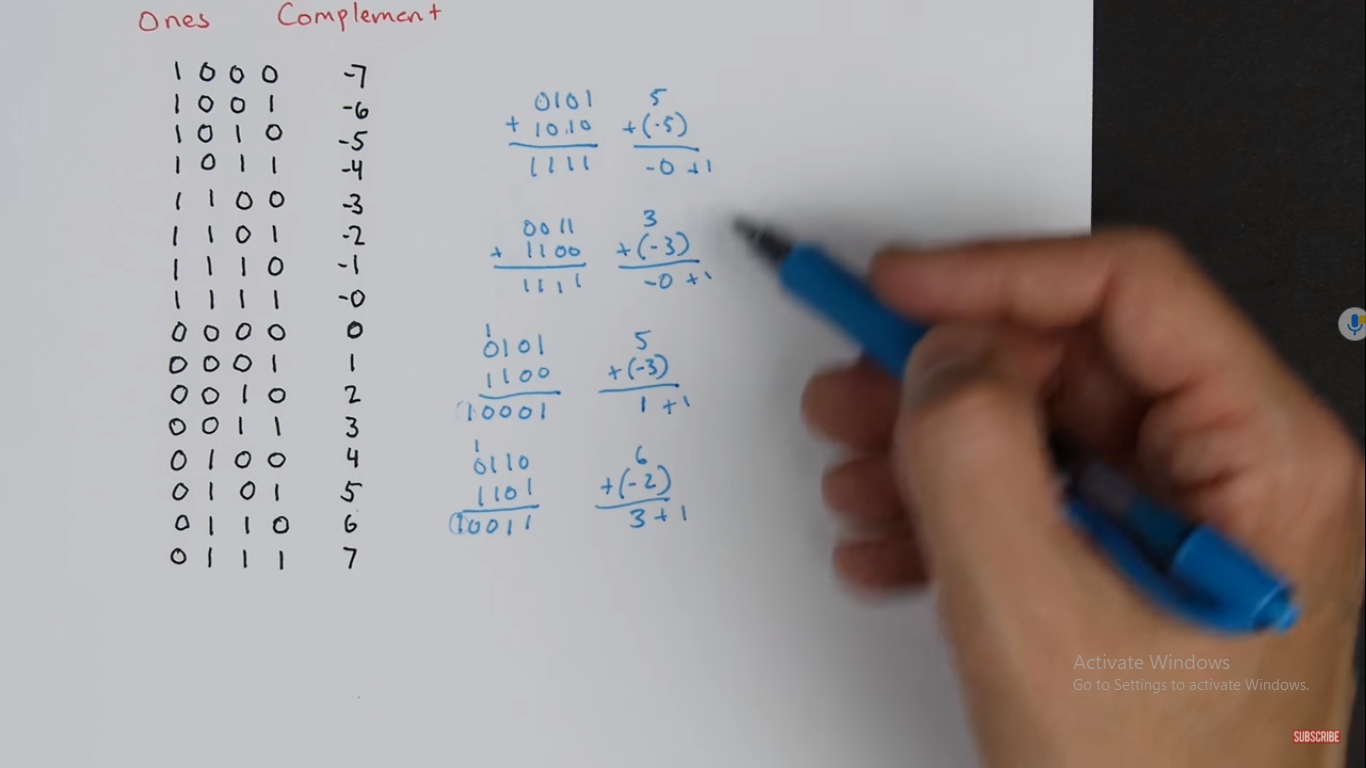 Ones Complement
1 0 0 0 -7
1 0 0 1 -6
1 0 1 0 -5
1 0 1 1 -4
1 1 0 0 -3
1 1 0 1 -2
1 1 1 0 -1
1 1 1 1 -0
0 0 0 0 0
0 0 0 1 1
0 0 1 0 2
0 0 1 1 3
0 1 0 0 4
0 1 0 1 5
0 1 1 0 6
0 1 1 1 7
0101 5
+ 1010 +(-5)
1111 -0 +1
0011 3
+ 1100 +(-3)
1111 -0 +1
1
0101 5
1100 +(-3)
10001 1 +1
1
0110 6
1101 +(-2)
10011 3 + 1
Activate Windows
Go to Settings to activate Windows.
SUBSCRIBE